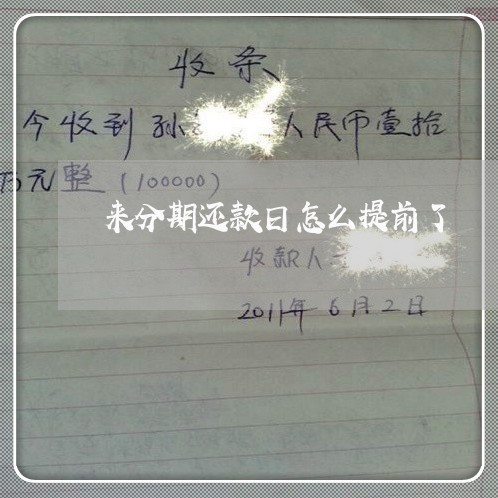 收条
今收到孙 人民币壹拾
万元整（100000）
来分期还款日怎么提前了
收款人
2011年6月2日